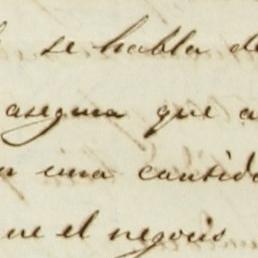 se habla de
asegura que a
una cantida
ue el negocio